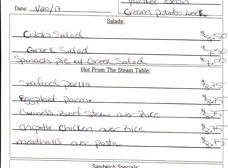 Cream Potato Leek
Date: 1/20/17
Salads:
Cobb Salad $8.50
Greek Salad $7.50
Spinach Pie w/ Greek Salad $9.00
Hot From The Steam Table:
Seafood Paella
Eggplant Parm
Guiness Beef Stew over Rice
Chipotle Chicken over Rice
meatballs over pasta
Sandwich Specials: